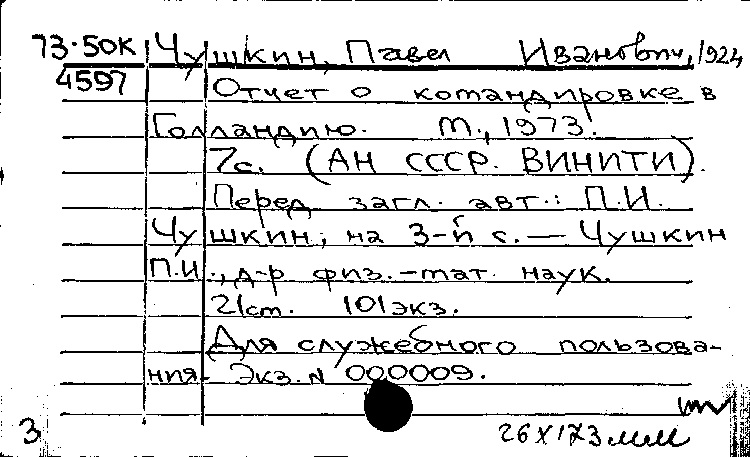 73-50К Чушкин, Павел Иванович, 1924
4597 Отчет о командировке в
Голландию. М., 1973.
7с. (АН СССР. ВИНИТИ).
Перед загл. авт.: П.И.
Чушкин; на 3-й с. — Чушкин
П.И., д-р физ.-мат. наук.
21см. 101экз.
Для служебного пользова-
ния. Экз. N 000009.
3 26х173мм